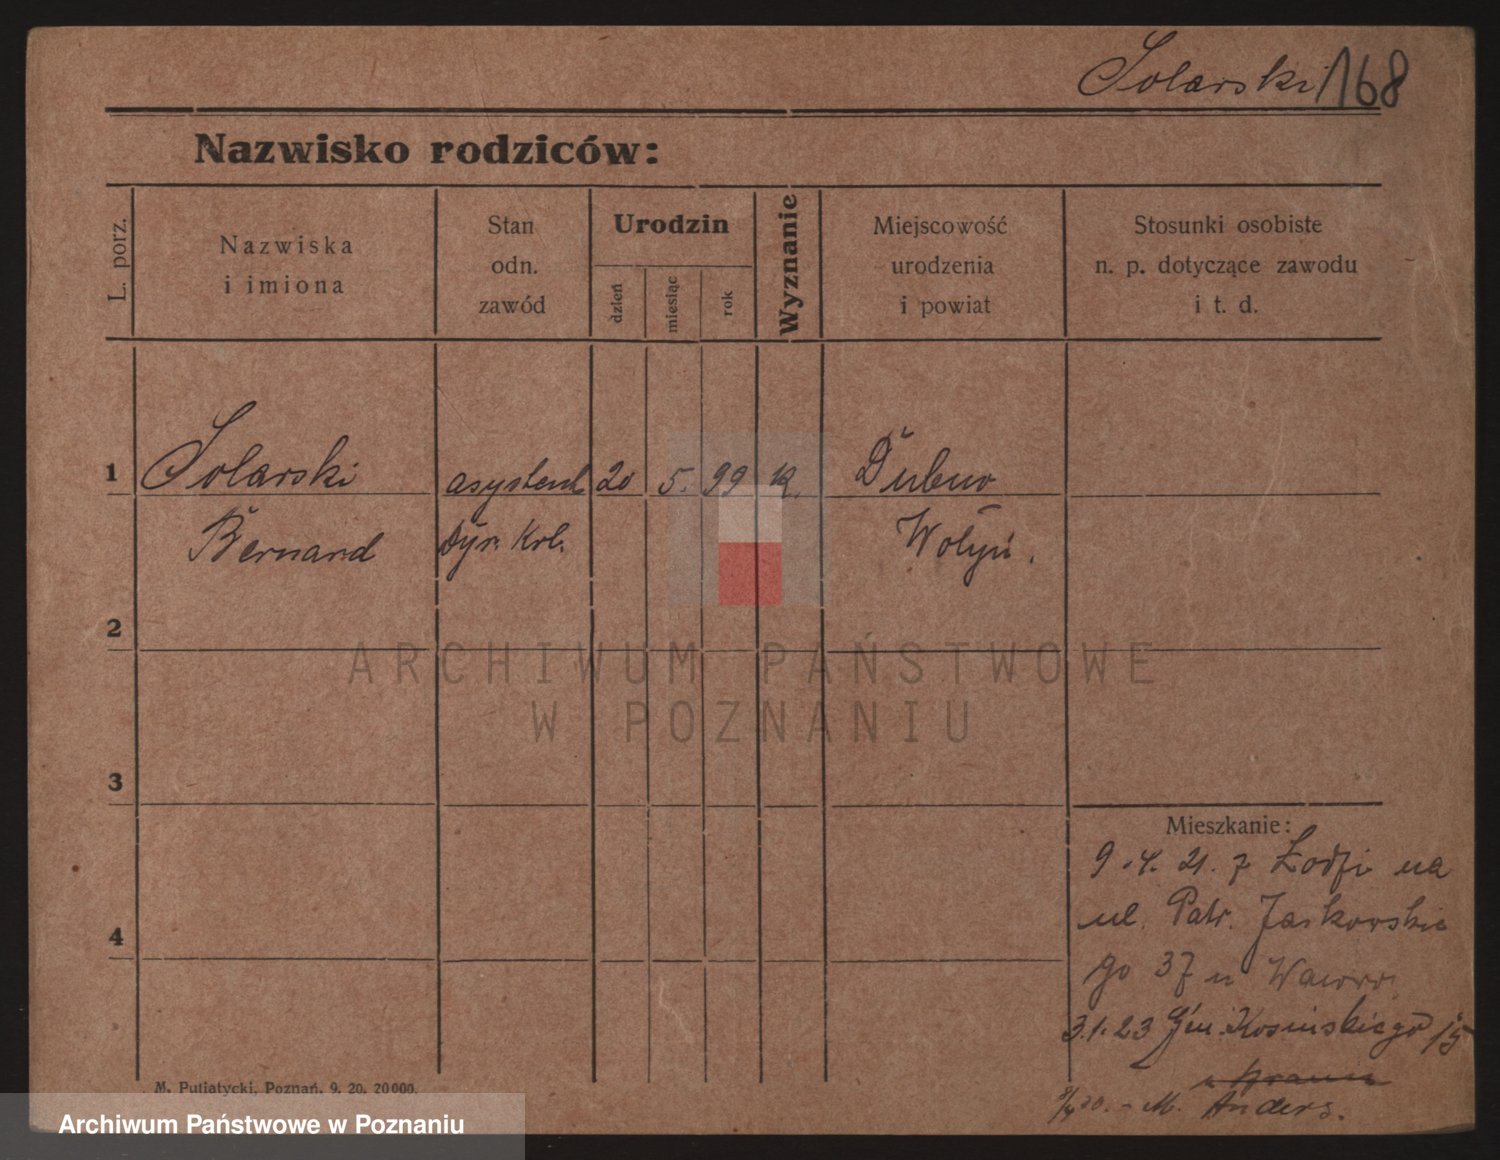 Solarski 168
Nazwisko rodziców:
L. porz.
Nazwiska
i imiona
Stan
odn.
zawód
Urodzin
dzień
miesiąc
rok
Wyznanie
Miejscowość
urodzenia
i powiat
Stosunki osobiste
n. p. dotyczące zawodu
i t. d.
1 Solarski asystent 20 5. 99 k. Dubno
Bernard Dyr. Kol. Wołyń.
2
ARCHIWUM PAŃSTWOWE
W POZNANIU
3
Mieszkanie:
9.4.21. z Łodzi na
ul. Patr. Jackowskie
4
go 37 u Wawrz.
3.1.23 Gen. Kosińskiego 15
M. Putiatycki, Poznań. 9. 20. 20000.
M. Anders.
Archiwum Państwowe w Poznaniu